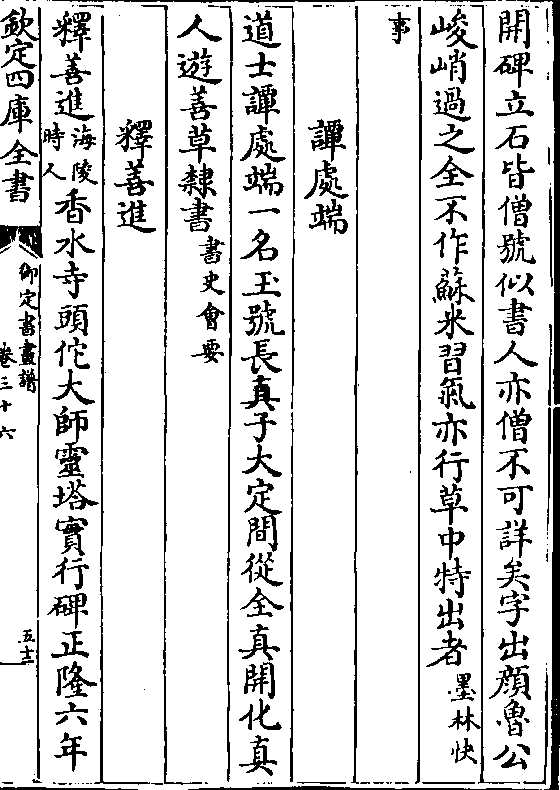 開碑立石皆僧號似書人亦僧不可詳矣字出顔魯公
峻峭過之全不作蘇米習氣亦行草中特出者墨林快
事
譚處端
道士譚處端一名玉號長真子大定間從全真開化真
人遊善草隸書書史會要
釋善進
釋善進海陵時人香水寺頭佗大師靈塔實行碑正隆六年
欽定四庫全書
御定書畫譜
卷三十六
五十二